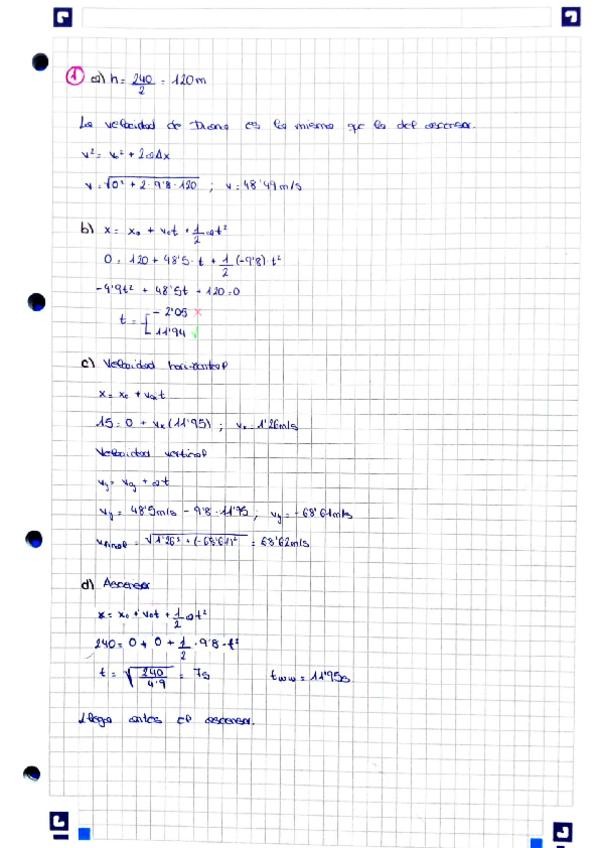 1 a) h = 240/2 = 120 m
La velocidad de Diana es la misma que la del ascensor.
v² = v₀² + 2aΔx
v = √(0² + 2·9'8·120) ; v = 48'49 m/s
b) x = x₀ + v₀t + 1/2 at²
0 = 120 + 48'5·t + 1/2 (-9'8)·t²
-4'9t² + 48'5t + 120 = 0
t = [ -2'05 ×
11'94 √
c) Velocidad horizontal
x = x₀ + v₀ₓt
15 = 0 + vₓ(11'95) ; vₓ = 1'26 m/s
Velocidad vertical
v_y = v₀y + at
v_y = 48'5 m/s - 9'8·11'95 ; v_y = -68'61 m/s
v final = √(1'26² + (-68'61)²) = 68'62 m/s
d) Ascensor
x = x₀ + v₀t + 1/2 at²
240 = 0 + 0 + 1/2·9'8·t²
t = √(240/4'9) = 7s t ww = 11'95s.
Llega antes el ascensor.